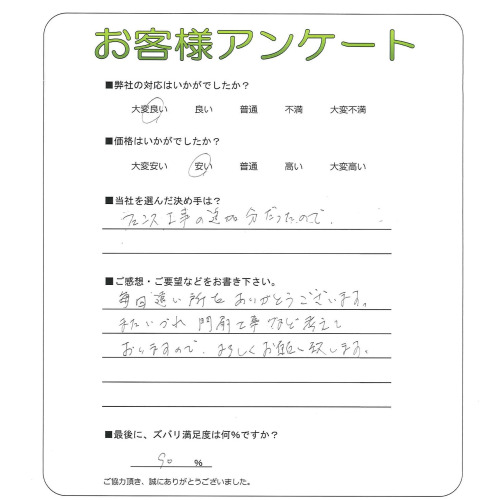 お客様アンケート
■弊社の対応はいかがでしたか？
大変良い 良い 普通 不満 大変不満
■価格はいかがでしたか？
大変安い 安い 普通 高い 大変高い
■当社を選んだ決め手は？
フェンス工事の追加分だったので、
■ご感想・ご要望などをお書き下さい。
毎回遠い所をありがとうございます。
またいづれ門扉工事など考えて
おりますので、よろしくお願い致します。
■最後に、ズバリ満足度は何％ですか？
90 ％
ご協力頂き、誠にありがとうございました。